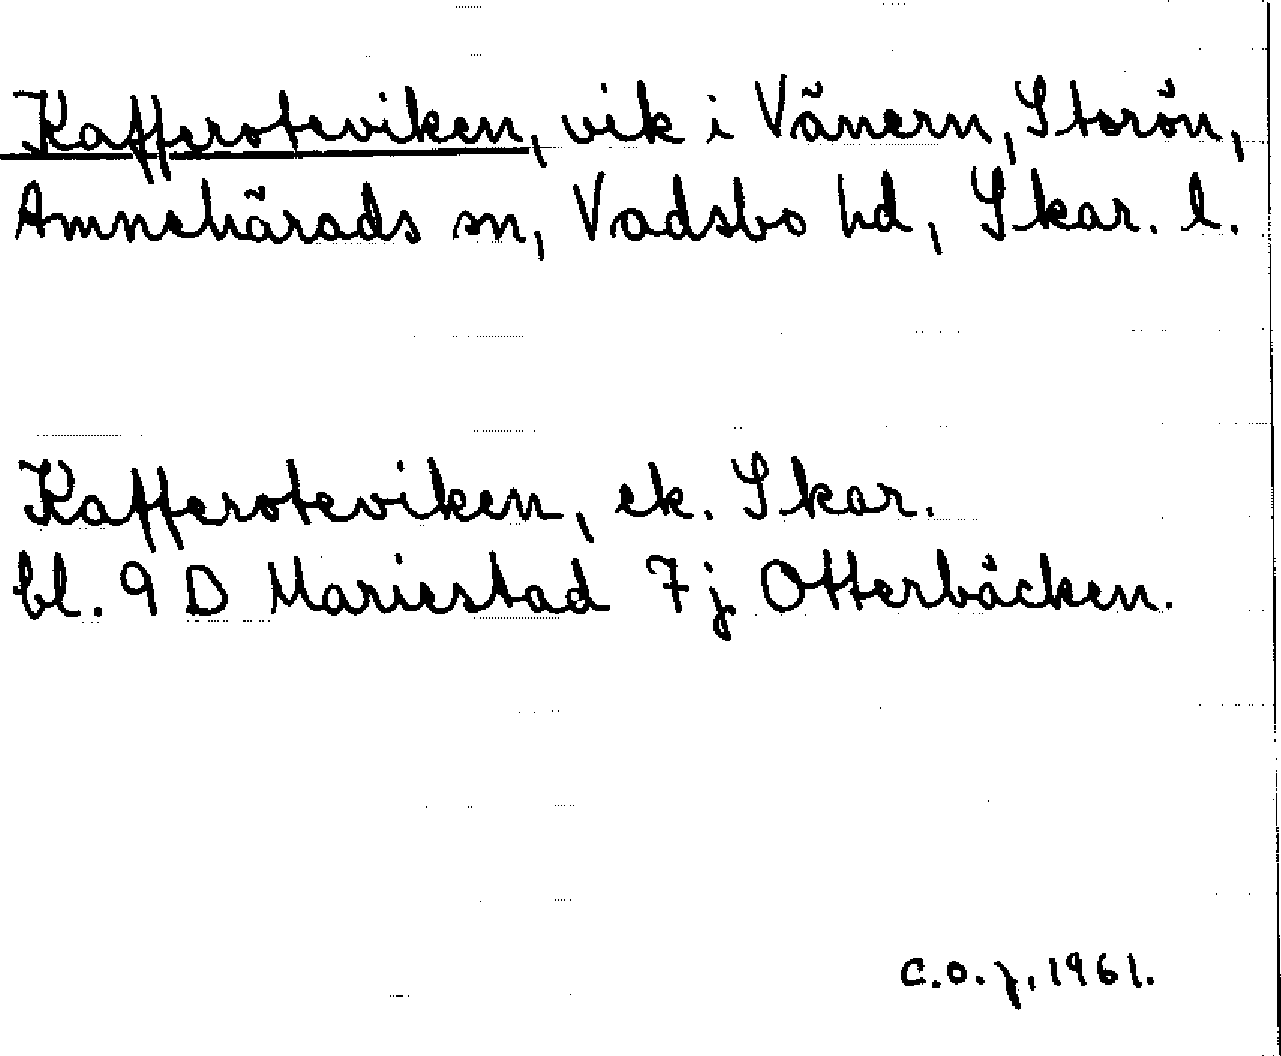 Kafferoteviken, vik i Vänern, Storön,
Amnehärads sn, Vadsbo hd, Skar. l.
Kafferoteviken, ek. Skar.
bl. 9 D Mariestad 7j Otterbäcken.
C.O.J. 1961.